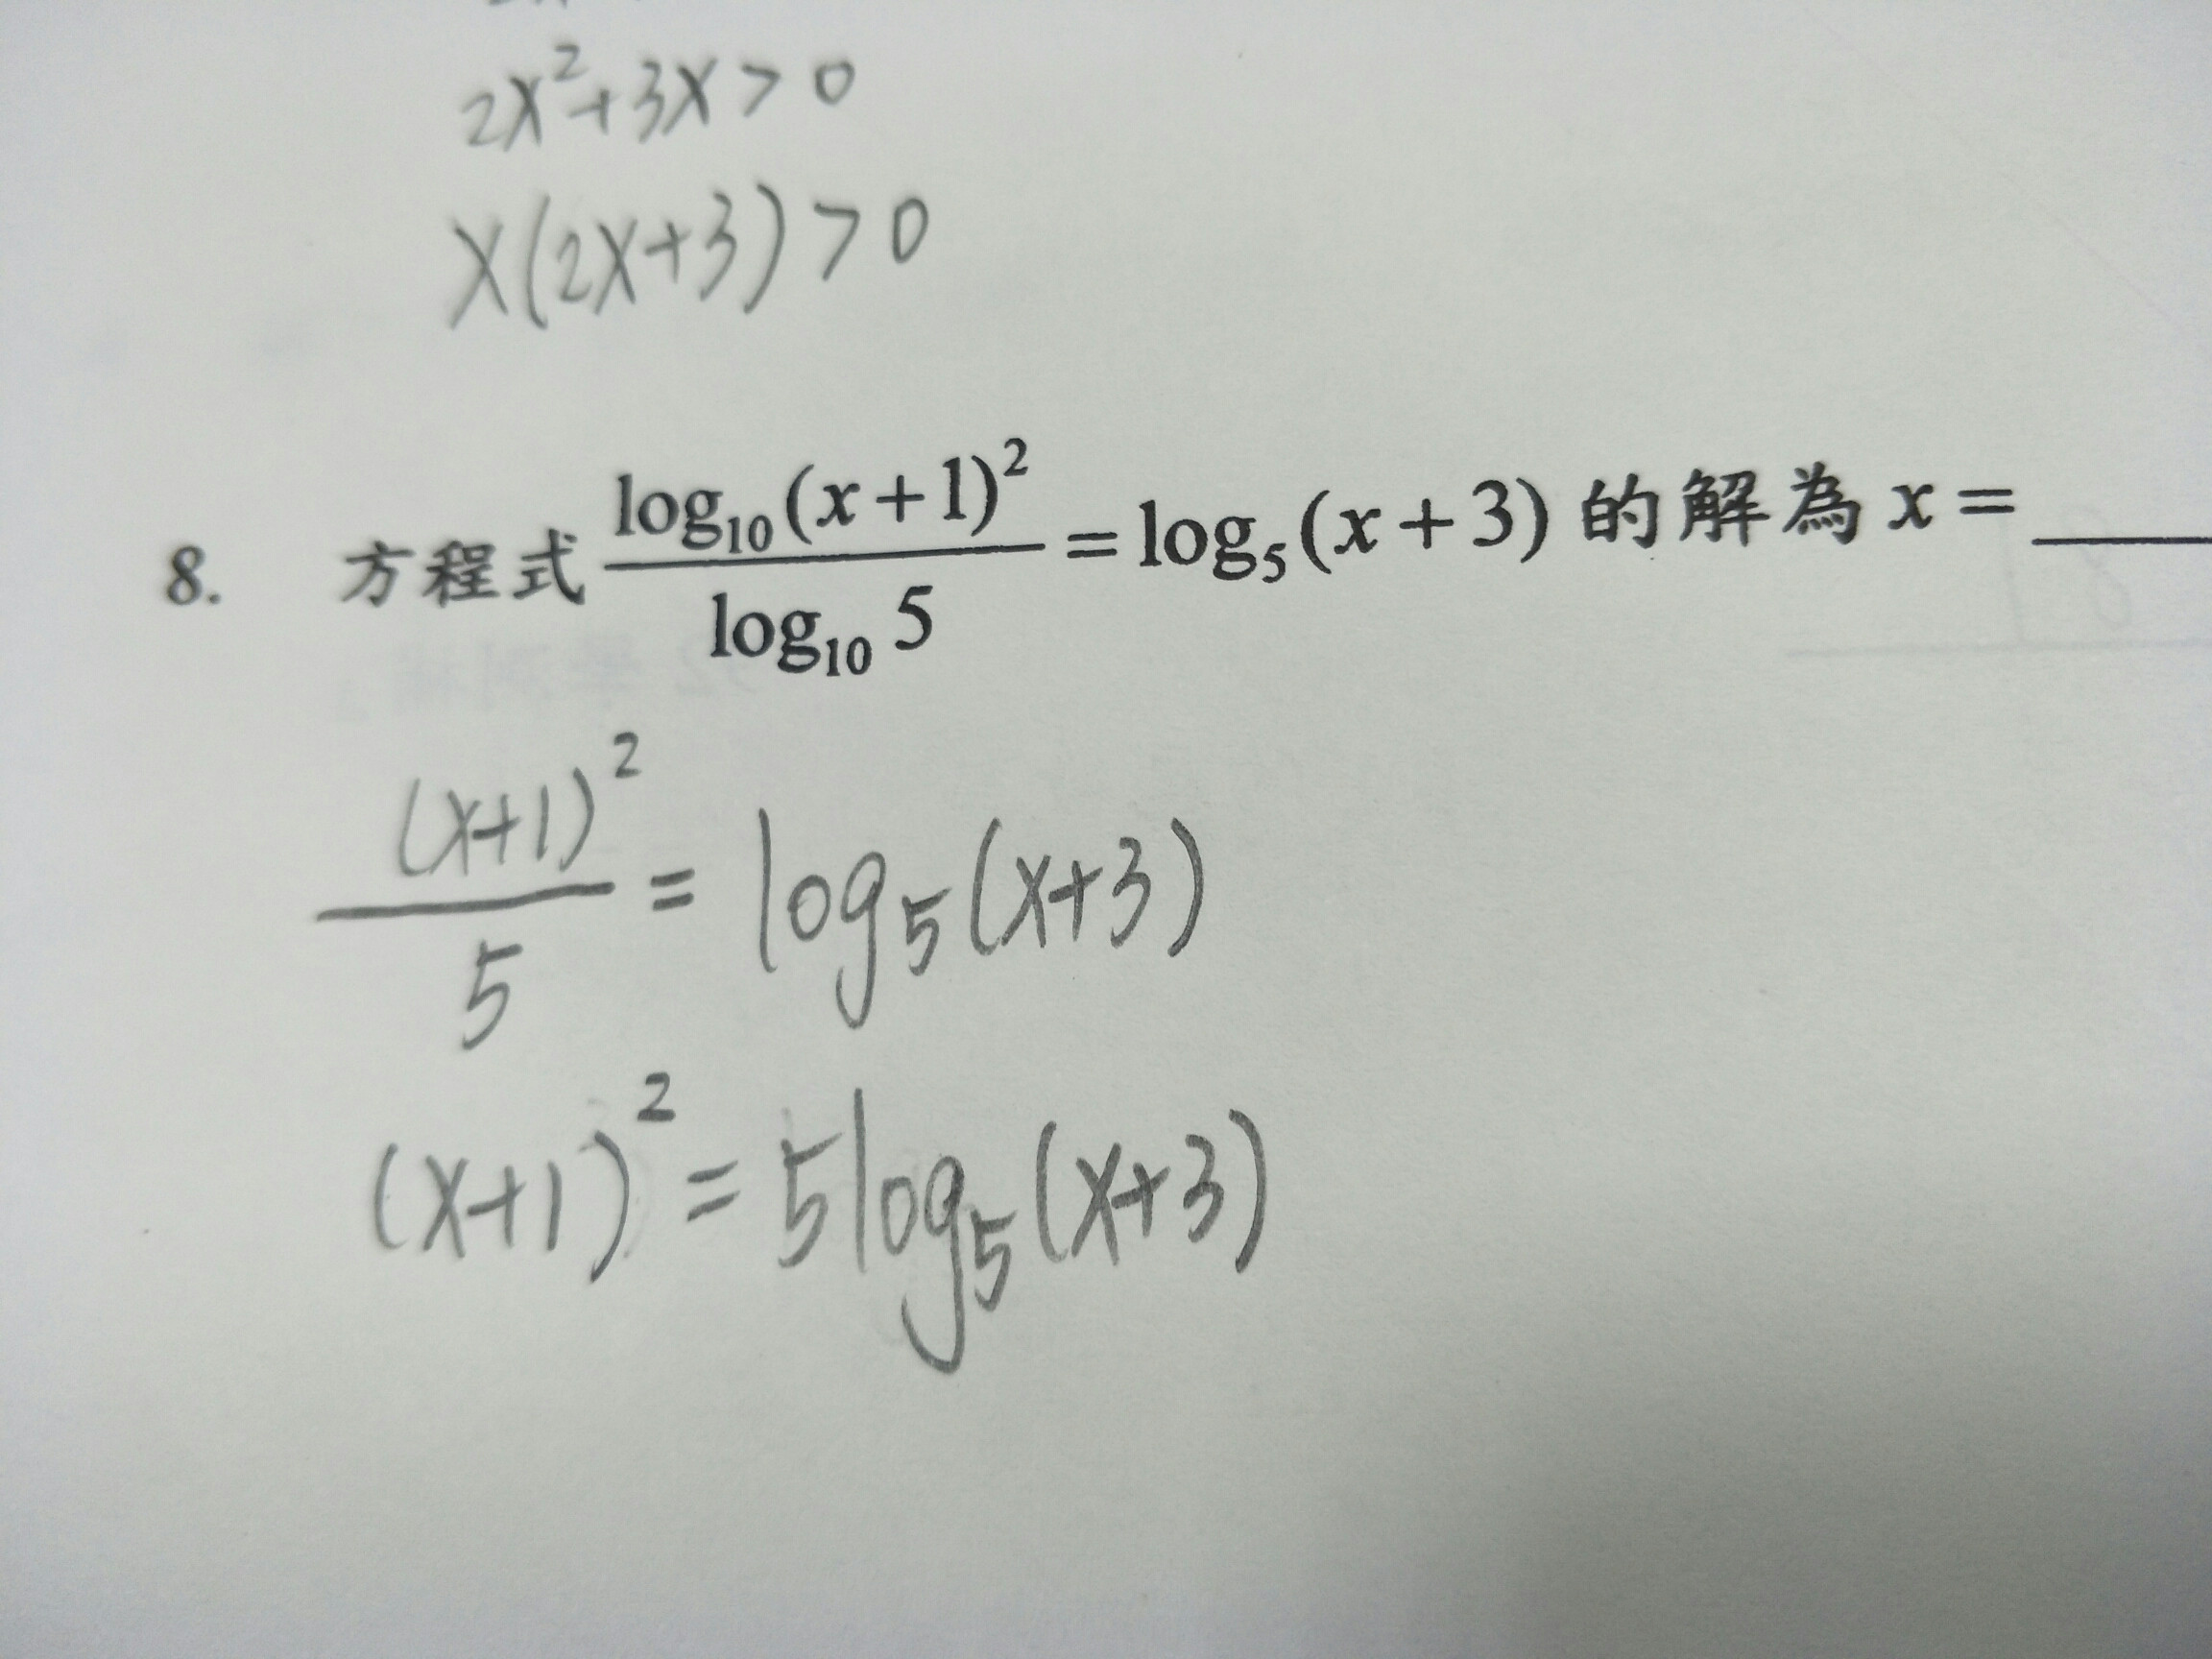 2x²+3x>0
x(2x+3)>0
8. 方程式 log₁₀(x+1)² / log₁₀5 = log₅(x+3) 的解為 x = ____
(x+1)² / 5 = log₅(x+3)
(x+1)² = 5log₅(x+3)